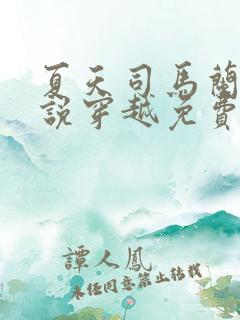 夏天司馬蘭
說穿越免費
譚人鳳
未经同意禁止转载